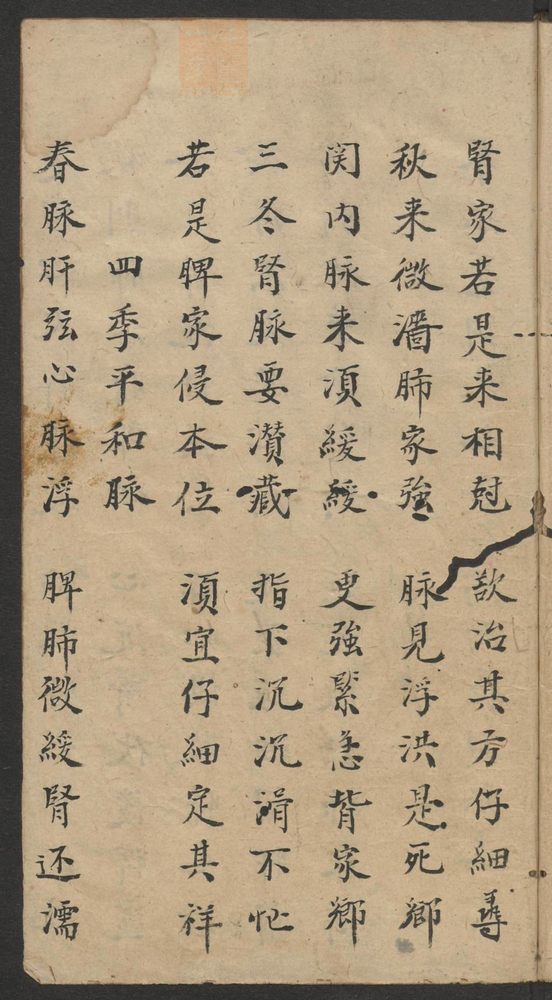 腎家若是来相尅 欲治其方仔細尋
秋来微濇肺家強 脉見浮洪是死鄉
関内脉来須緩緩 更強緊急背家鄉
三冬腎脉要濳藏 指下沉沉滑不忙
若是脾家侵本位 須宜仔細定其祥
四季平和脉
春脉肝弦心脉浮 脾肺微緩腎还濡